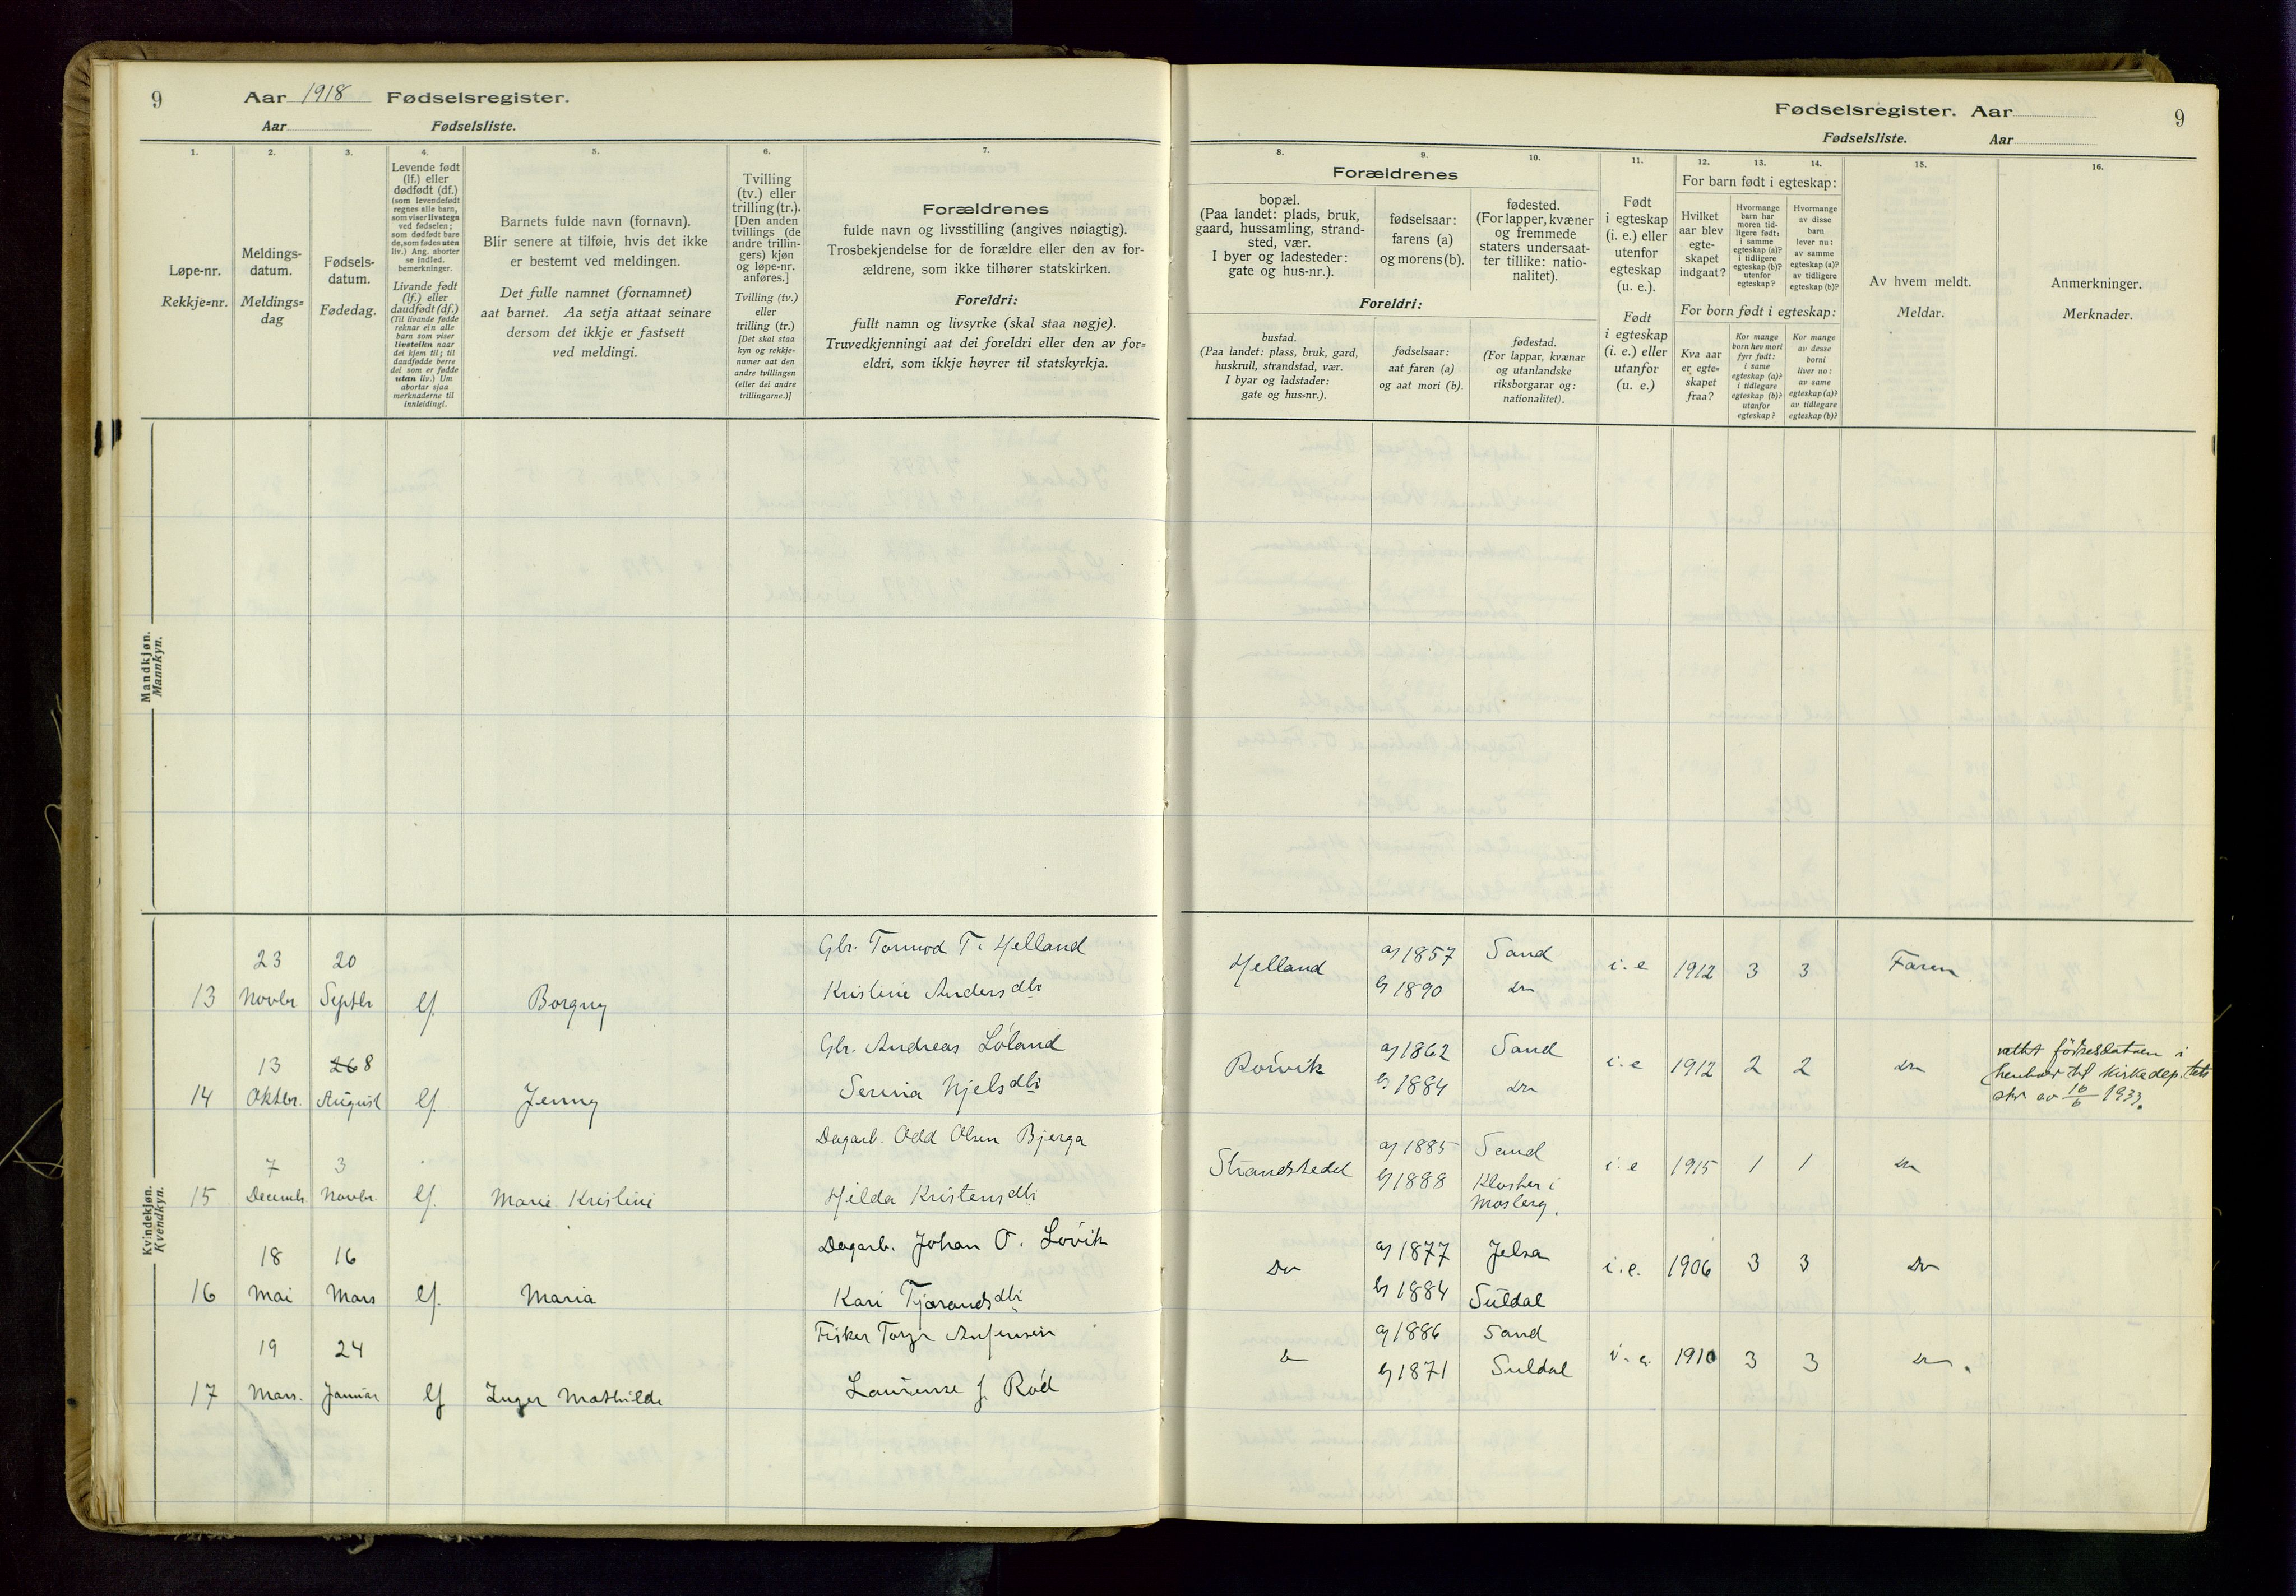 9 Aar 1918 Fødselsregister.
Aar Fødselsliste.
1.
2.
3.
4.
5.
6.
7.
Løpe-nr.
Rekkje=nr.
Meldings-
datum.
Meldings=
dag
Fødsels-
datum.
Fødedag.
Levende født
(lf.) eller
dødfødt (df.)
(som levendefødt
regnes alle barn,
som viser livstegn
ved fødselen;
som dødfødt bare
de, som fødes uten
liv.) Ang. aborter
se indled.
bemerkninger.
Livande født
(lf.) eller
daudfødt (df.)
(Til livande fødde
reknar ein alle
born som viser
livsteikn naar
dei kjem til; til
daudfødde berre
dei som er fødde
utan liv.) Um
abortar sjaa
merknaderne til
innleidingi.
Barnets fulde navn (fornavn).
Blir senere at tilføie, hvis det ikke
er bestemt ved meldingen.
Det fulle namnet (fornamnet)
aat barnet. Aa setja attaat seinare
dersom det ikkje er fastsett
ved meldingi.
Tvilling
(tv.) eller
trilling (tr.).
[Den anden
tvillings (de
andre trillin-
gers) kjøn
og løpe-nr.
anføres.]
Tvilling (tv.)
eller
trilling (tr.)
[Det skal staa
kyn og rekkje-
numer aat den
andre tvillingen
(eller dei andre
trillingarne.)]
Forældrenes
fulde navn og livsstilling (angives nøiagtig).
Trosbekjendelse for de forældre eller den av for-
ældrene, som ikke tilhører statskirken.
Foreldri:
fullt namn og livsyrke (skal staa nøgje).
Truvedkjenningi aat dei foreldri eller den av for=
eldri, som ikkje høyrer til statskyrkja.
Fødselsregister. Aar 9
Fødselsliste. Aar
8.
9.
10.
11.
12.
13.
14.
15.
16.
Forældrenes
bopæl.
(Paa landet: plads, bruk,
gaard, hussamling, strand-
sted, vær.
I byer og ladesteder:
gate og hus-nr.).
fødselsaar:
farens (a)
og morens (b).
fødested.
(For lapper, kvæner
og fremmede
staters undersaat-
ter tillike: natio-
nalitet).
Foreldri:
bustad.
(Paa landet: plass, bruk, gard,
huskrull, strandstad, vær.
I byar og ladstader:
gate og hus=nr.).
fødselsaar:
aat faren (a)
og aat mori (b).
fødestad.
(For lappar, kvænar
og utanlandske
riksborgarar og:
nationalitet).
Født
i egteskap
(i. e.) eller
utenfor
egteskap
(u. e.).
Født
i egteskap
(i. e.) eller
utanfor
(u. e.)
For barn født i egteskap:
Hvilket
aar blev
egte-
skapet
indgaat?
Hvormange
barn har
moren tid-
ligere født:
i samme
egteskap (a)?
i tidligere
egteskap (b)?
utenfor
egteskap?
Hvormange
av disse
barn
lever nu:
av samme
egteskap (a)?
av tidligere
egteskap (b)?
For born født i egteskap:
Kva aar
er egte=
skapet
fraa?
Kor mange
born hev mori
fyrr født:
i same
egteskap (a)?
i tidlegare
egteskap (b)?
utanfor
egteskap?
Kor mange
av desse
borni
liver no:
av same
egteskap (a)?
av tidlegare
egteskap (b)?
Av hvem meldt.
Meldar.
Anmerkninger.
Merknader.
Mandkjøn.
Mannkyn.
Kvindekjøn.
Kvendkyn.
13 23 Novbr 20 Septbr lf. Borgny
Gbr. Tormod T. Helland
Kristine Andersdtr
Helland a) 1857 Sand i. e 1912 3 3 Faren
b) 1890 Do
14 13 Oktbr. 26 8 August lf. Jenny
Gbr. Andreas Løland
Serina Njelsdtr
Rørvik a) 1862 Sand i. e 1912 2 2 Do
b) 1884 Do
rettet fødselsdatoen i
henhold til Kirkedep.tets
skr av 16/6 1933.
15 7 Decembr 3 Novbr. lf. Marie Kristine
Dagarb. Odd Olsen Bjerga
Hilda Kristensdtr
Strandstedet a) 1885 Sand i. e 1915 1 1 Do
b) 1888 Kloster i
Mosterø.
16 18 Mai 16 Mars lf. Maria
Dagarb. Johan O. Løvik
Kari Tjærandsdtr
Do a) 1877 Jelsa i. e. 1906 3 3 Do
b) 1884 Suldal
17 19 Mars. 24 Januar lf Inger Mathilde
Fisker Torger Anfinsen
Laurense J. Rød
Do a) 1886 Sand i. e. 1910 3 3 Do.
b) 1871 Suldal